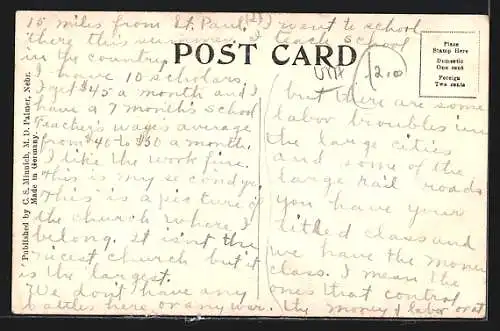 15 miles from St. Paul. (Neb) I went to school
there this summer. I teach school
in the country.
I have 10 scholars.
I get $45 a month and I
have a 7 month's school
Teacher's wages average
from $40 to $50 a month.
I like the work fine.
This is my second yr.
This is a picture of
the church where I
belong. It isn't the
nicest church but it
is the largest.
We don't have any
battles here, or any war.
POST CARD
Place
Stamp Here
Domestic
One cent
Foreign
Two cents
210
but there are some
labor troubles in
the large cities
and some of the
large rail roads
you have your
titled class and
we have the money
class. I mean the
ones that control
the money & labor or at
Published by C. S. Minnich, M. D. Palmer, Nebr.
Made in Germany.